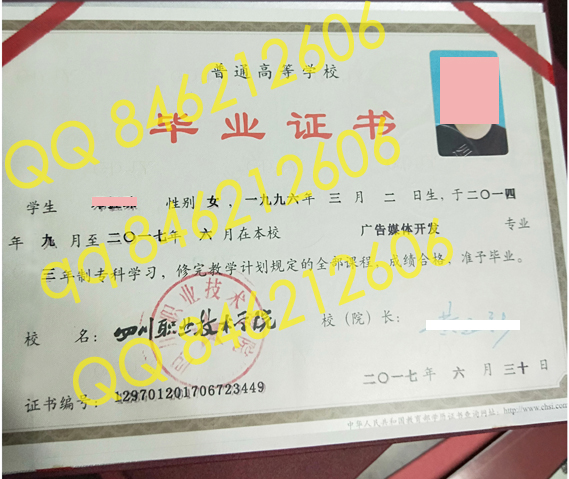 普通高等学校
毕业证书
学生 性别 女，一九九六年 三月 二日生，于二〇一四
年 九 月至二〇一七年 六月在本校 广告媒体开发 专业
三年制专科学习，修完教学计划规定的全部课程，成绩合格，准予毕业。
校 名：四川职业技术学院 校（院）长：
二〇一七年 六月三十日
证书编号：129701201706723449
中华人民共和国教育部学历证书查询网址：http://www.chsi.com.cn
四川职业技术学院
QQ 846212606
QQ 846212606
qq 846212606
QQ 846212606